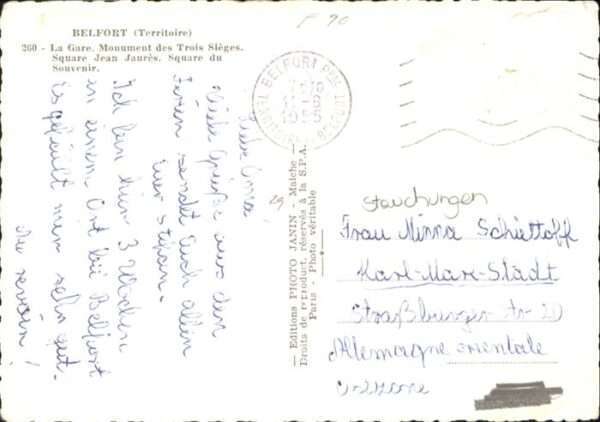 BELFORT (Territoire)
260 - La Gare. Monument des Trois Sièges.
Square Jean Jaurès. Square du
Souvenir.
F 90
BELFORT
1965
Liebe Oma!
Viele Grüße aus den
Ferien sendet Euch allen
Euer Stefan.
Ich bin hier 3 Wochen
in einem Ort bei Belfort
Es gefällt mir sehr gut.
Au revoir!
29
— Editions PHOTO JANIN - Maîche —
Droits de reproduct. réservés à la S.P.A.
Paris - Photo véritable
Stauchungen
Frau Minna Schüttoff
Karl-Marx-Stadt
Straßburger Str 20
Allemagne orientale